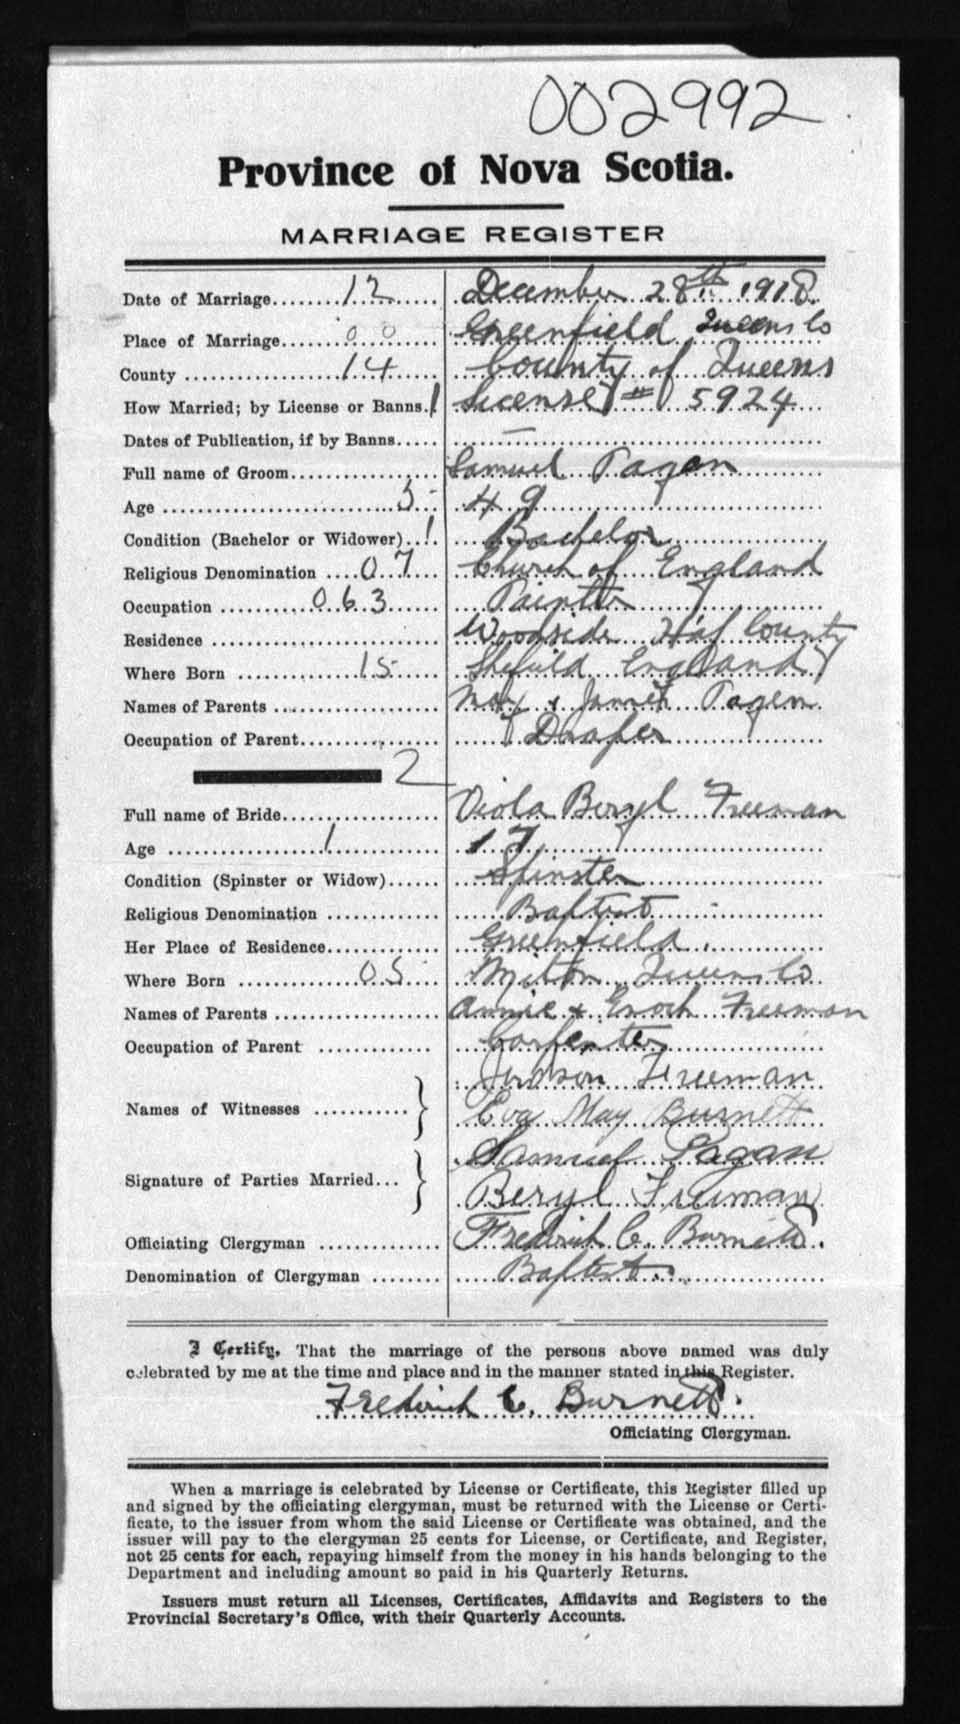 002992
Province of Nova Scotia.
MARRIAGE REGISTER
Date of Marriage........12...... December 28th 1918.
Place of Marriage......00...... Greenfield Queens Co
County ................14...... County of Queens
How Married; by License or Banns.1 License # 5924
Dates of Publication, if by Banns..... —
Full name of Groom.................. Samuel Pagen
Age ..........................5. 49
Condition (Bachelor or Widower)..1. Bachelor
Religious Denomination ....07... Church of England
Occupation ..........063...... Painter
Residence ........................... Woodside Haf County
Where Born .............15..... Shefield England
Names of Parents .................. & Janet Pagen
Occupation of Parent................. Draper
2
Full name of Bride................... Viola Beryl Freeman
Age ..................1............ 17
Condition (Spinster or Widow)...... Spinster
Religious Denomination ............. Baptist
Her Place of Residence............. Greenfield.
Where Born .............05.... Milton Queens Co
Names of Parents .................. Annie & Enoch Freeman
Occupation of Parent ............. Carpenter
Freeman
Names of Witnesses ........... } Eva May Burnett
Samuel Pagan
Signature of Parties Married... } Beryl Freeman
Officiating Clergyman ............. Frederick C. Burnett.
Denomination of Clergyman ........ Baptist.
I Certify, That the marriage of the persons above named was duly
celebrated by me at the time and place and in the manner stated in this Register.
Frederick C. Burnett.
Officiating Clergyman.
When a marriage is celebrated by License or Certificate, this Register filled up
and signed by the officiating clergyman, must be returned with the License or Certi-
ficate, to the issuer from whom the said License or Certificate was obtained, and the
issuer will pay to the clergyman 25 cents for License, or Certificate, and Register,
not 25 cents for each, repaying himself from the money in his hands belonging to the
Department and including amount so paid in his Quarterly Returns.
Issuers must return all Licenses, Certificates, Affidavits and Registers to the
Provincial Secretary's Office, with their Quarterly Accounts.